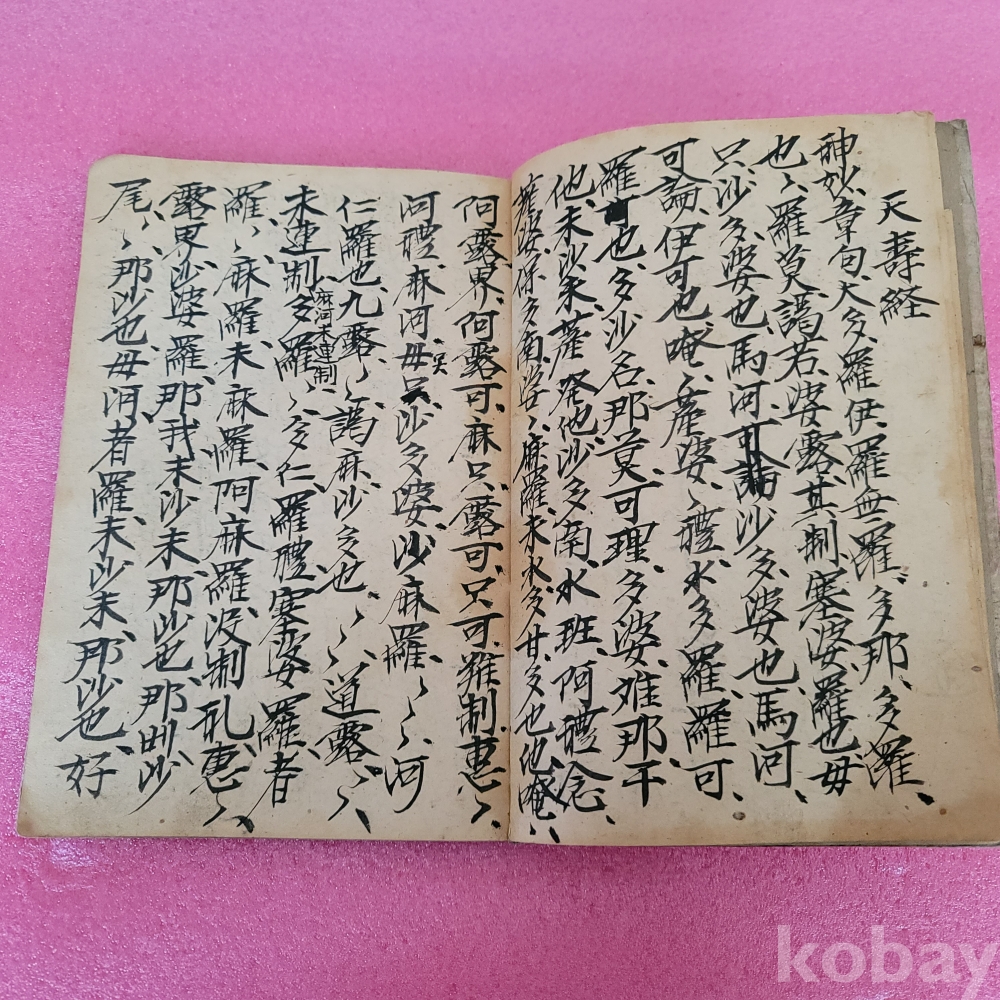 天壽経
神妙章句大多、羅伊羅無羅、多那、多羅、
也、羅莫、謁若婆露、其制塞婆、羅也、毋
只、沙多婆也、馬河、可論沙多、婆也、馬河、
可論、伊可也、唵、薩婆、禮、水多羅、羅可、
羅可也、多沙名、那莫、可理、多婆、難那干
他、未沙未、薩発他、沙多南、水班、阿禮念
薩婆多南婆、麻羅、未水多甘、多也他、唵、
阿露界、阿露可、麻只、露可、只可、制惠、
河禮、麻河毋沙多婆、沙麻羅、河
仁羅也、九露、謁麻、沙多也、道露、
未連制、多羅、多仁、羅禮、塞婆、羅者
麻河未連制
羅、麻羅、未麻羅、阿麻羅、没制、礼惠、
露界沙婆、羅那我未沙未、那沙也、那沙
尾、那沙也、毋者羅、未沙未、那沙也、好
kobay